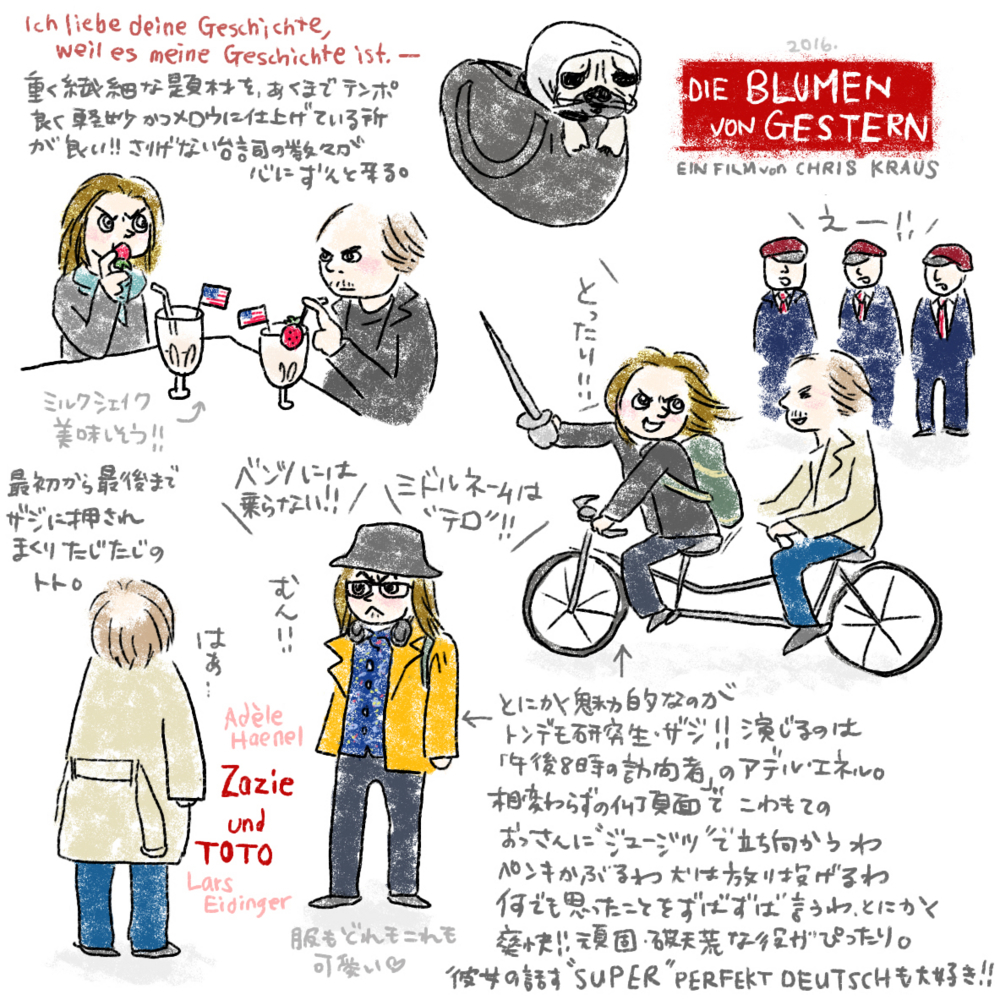 Ich liebe deine Geschichte,
weil es meine Geschichte ist. —
重く繊細な題材を、あくまでテンポ
良く軽妙かつメロウに仕上げている所
が良い!! さりげない台詞の数々が
心にずんと来る。
2016.
DIE BLUMEN
VON GESTERN
EIN FILM von CHRIS KRAUS
えー!!
とったり!!
ミルクシェイク
美味しそう!!
最初から最後まで
ザジに押され
まくりたじたじの
トト。
ベンツには
乗らない!!
ミドルネームは
"テロ"!!
むん!!
はぁ…
Adèle
Haenel
Zazie
und
TOTO
Lars
Eidinger
服もどれもこれも
可愛い♡
とにかく魅力的なのが
トンデモ研究生・ザジ!! 演じるのは
「午後8時の訪問者」のアデル・エネル。
相変わらずの仏頂面で こわもての
おっさんに"ジュージツ"で立ち向かうわ
ペンキかぶるわ犬は放り投げるわ
何でも思ったことをずばずば言うわ、とにかく
爽快!! 頑固・破天荒な役がぴったり。
彼女の話す"SUPER"PERFEKT DEUTSCHも大好き!!